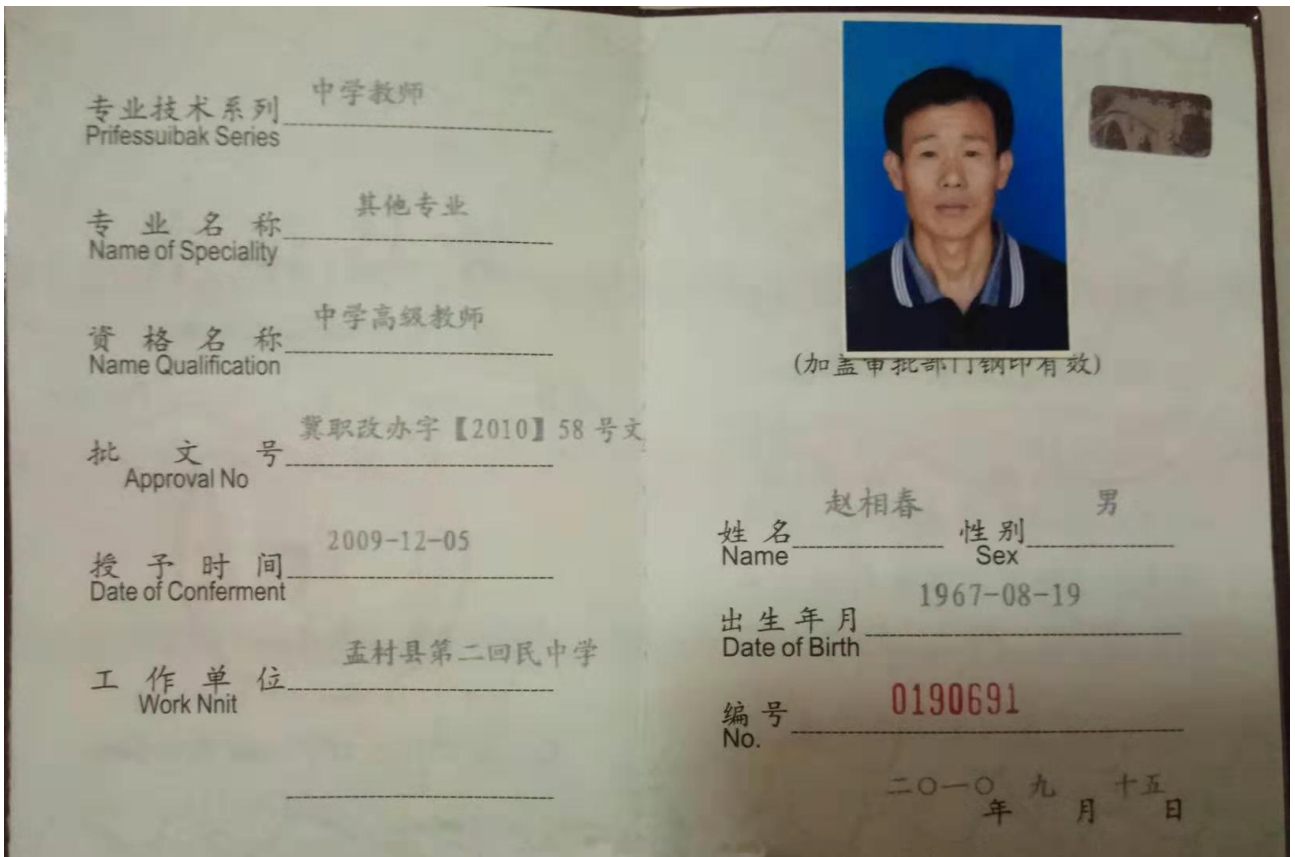 专业技术系列 中学教师
Prifessuibak Series
专业名称 其他专业
Name of Speciality
资格名称 中学高级教师
Name Qualification
批文号 冀职改办字【2010】58号文
Approval No
授予时间 2009-12-05
Date of Conferment
工作单位 孟村县第二回民中学
Work Nnit
(加盖审批部门钢印有效)
姓名 赵相春 性别 男
Name Sex
出生年月 1967-08-19
Date of Birth
编号 0190691
No.
二〇一〇年九月十五日